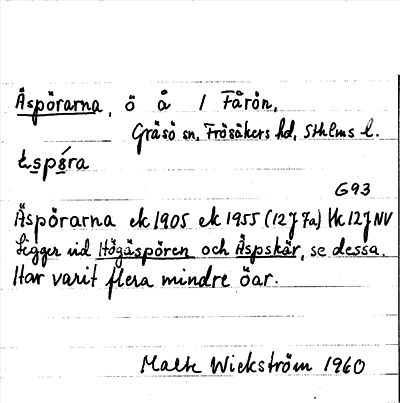 Äspörarna, ö å / Fårön,
Gräsö sn, Frösåkers hd, Sthlms l.
G93
Äspörarna ek 1905 ek 1955 (12J 7a) Hk 12J NV
Ligger vid Högäspören och Äspskär, se dessa.
Har varit flera mindre öar.
Malte Wickström 1960